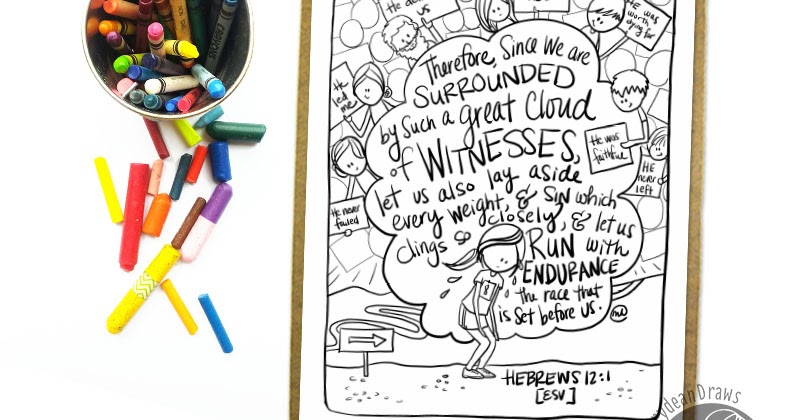 us
HE WAS
worth
dying for
He
led
me
He was
faithful
He
never
left
He never
failed
Therefore, Since We are
SURROUNDED
by Such a great Cloud
of WITNESSES,
let us also lay aside
every weight, & Sin which
clings so closely, & let us
RUN with
ENDURANCE
the race that
is set before us.
HEBREWS 12:1
[ESV]
ydeanDraws